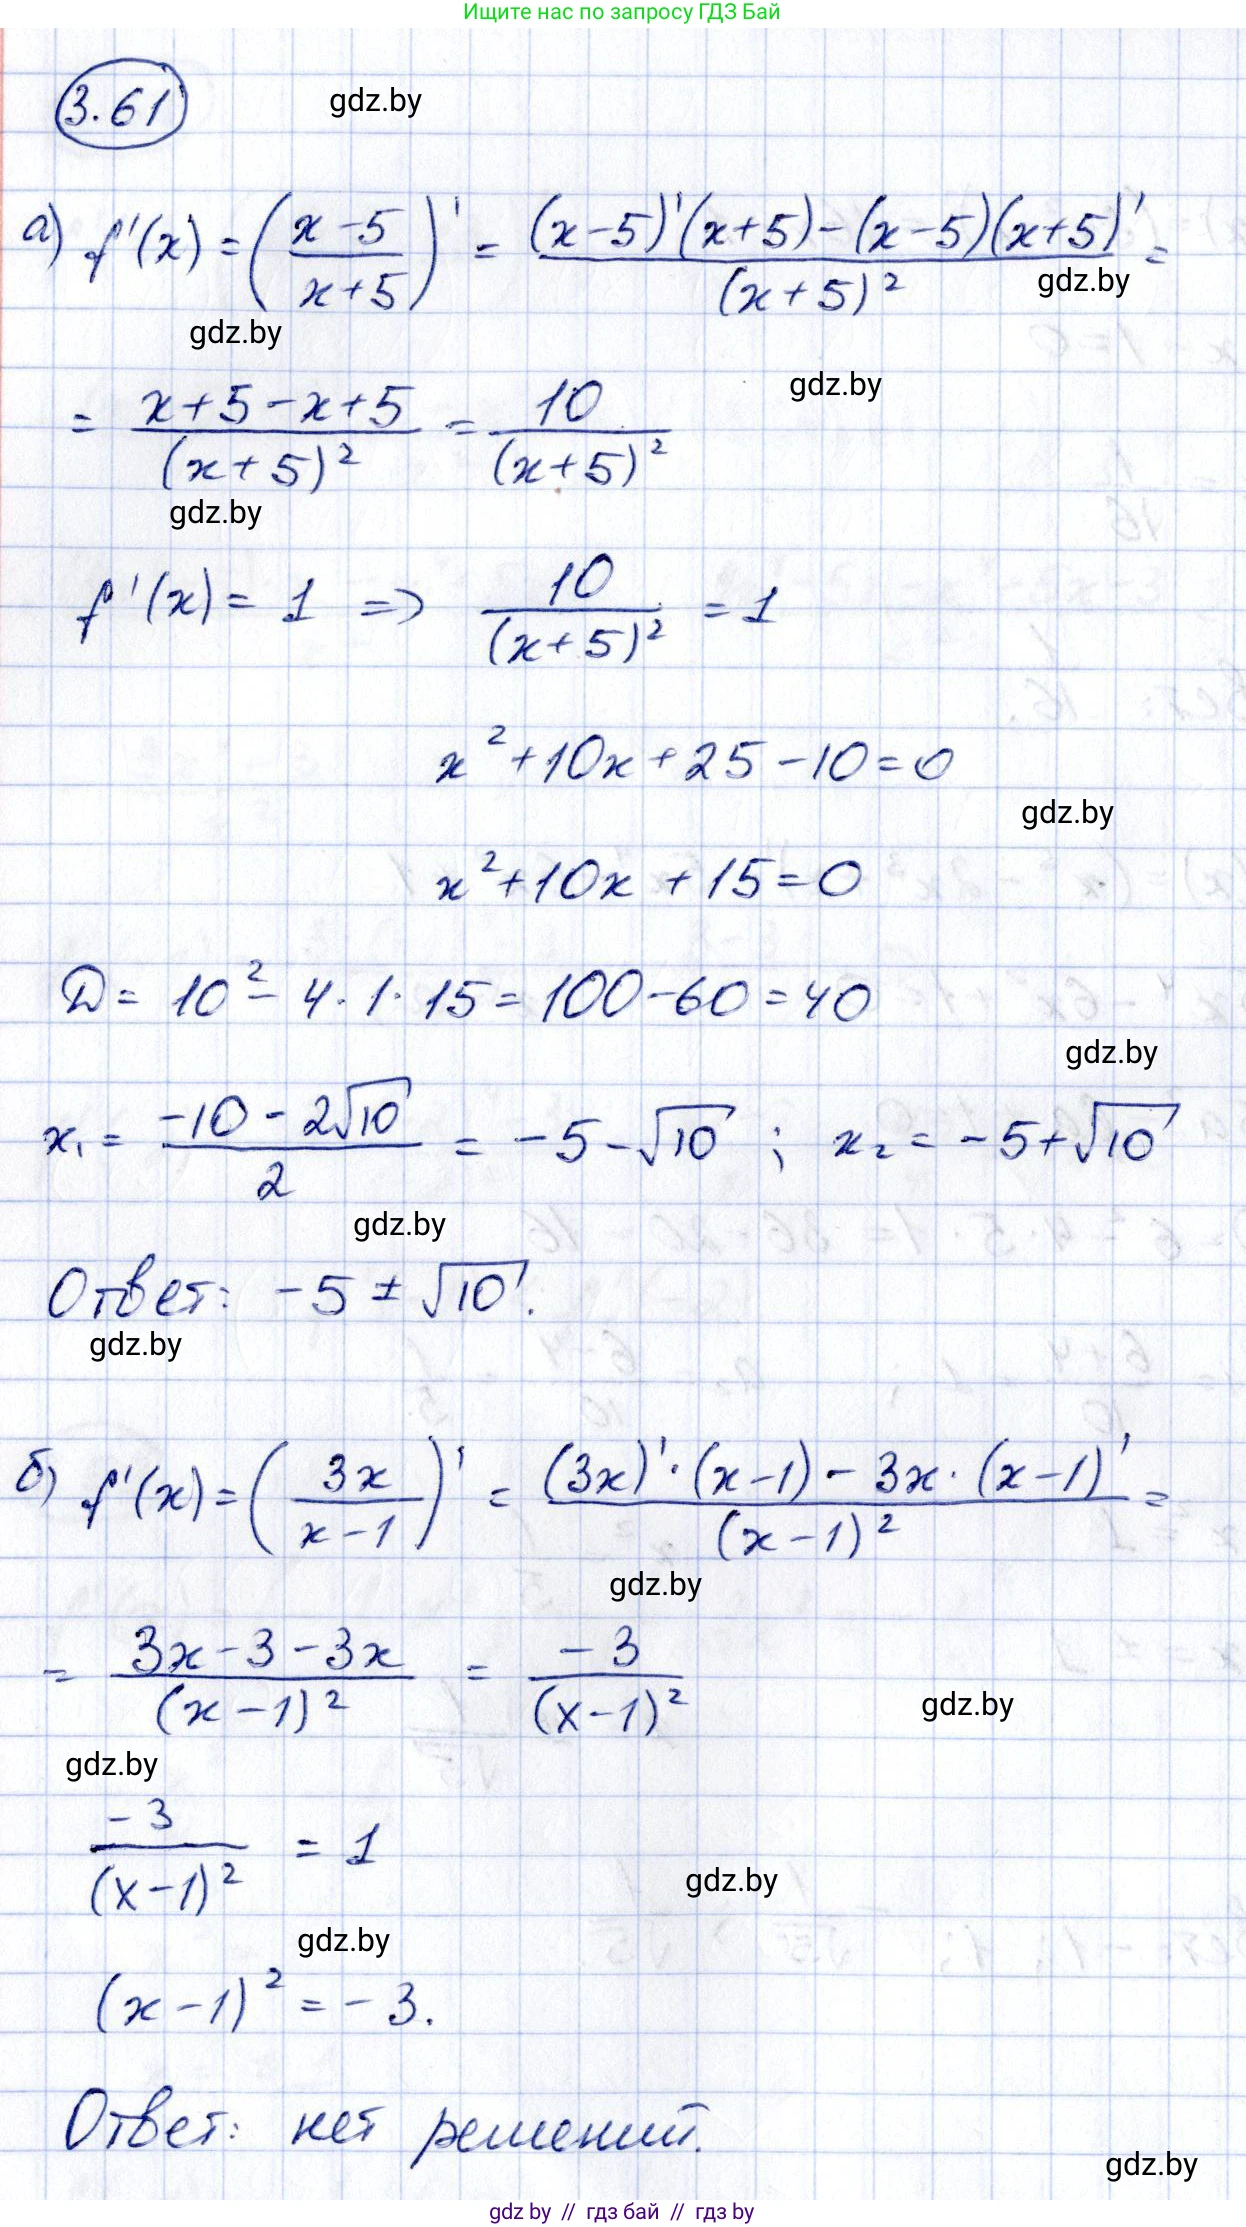 Ищите нас по запросу ГДЗ Бай
3.61
gdz.by
а) f'(x) = ((x-5)/(x+5))' = ((x-5)'(x+5)-(x-5)(x+5)')/(x+5)² =
gdz.by
gdz.by
= (x+5-x+5)/(x+5)² = 10/(x+5)²
gdz.by
gdz.by
f'(x) = 1 => 10/(x+5)² = 1
x²+10x+25-10=0
gdz.by
x²+10x+15=0
D = 10² - 4·1·15 = 100-60 = 40
gdz.by
x₁ = (-10-2√10)/2 = -5-√10 ; x₂ = -5+√10
gdz.by
Ответ: -5 ± √10.
gdz.by
б) f'(x) = (3x/(x-1))' = ((3x)'·(x-1)-3x·(x-1)')/(x-1)² =
gdz.by
= (3x-3-3x)/(x-1)² = -3/(x-1)²
gdz.by
gdz.by
-3/(x-1)² = 1
gdz.by
gdz.by
(x-1)² = -3.
Ответ: нет решений.
gdz.by
gdz by // гдз бай // гдз by